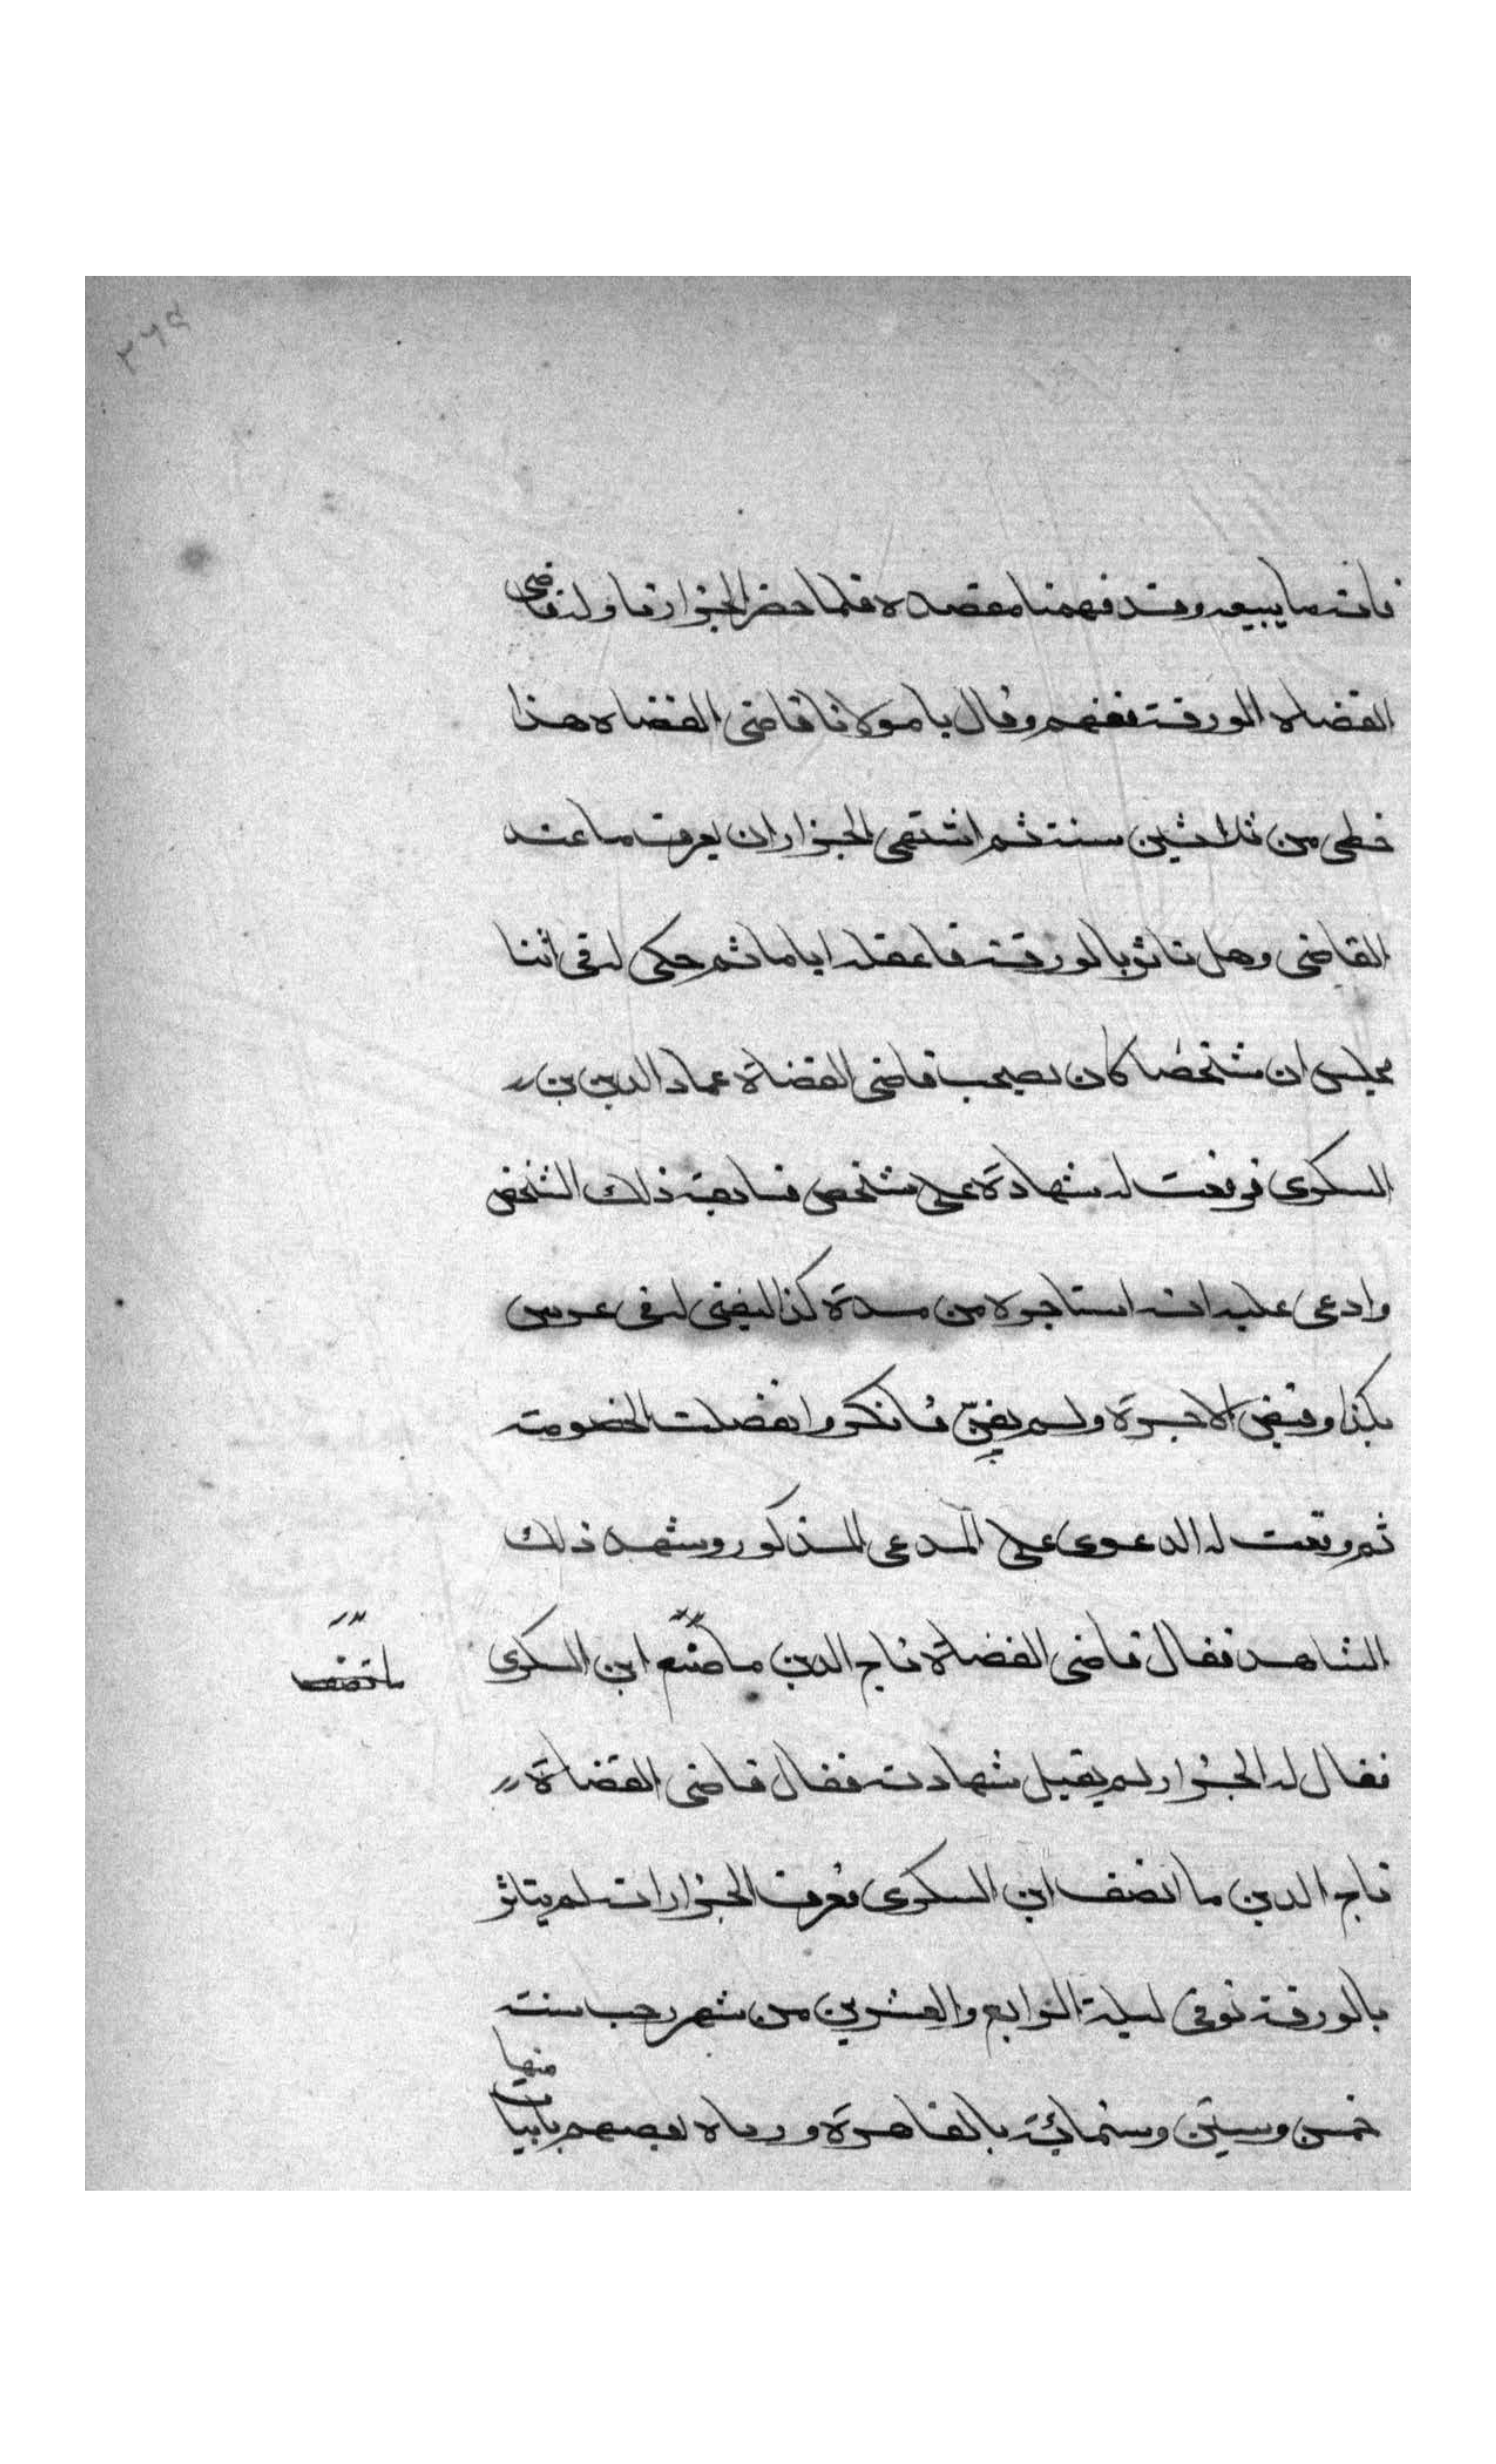 ٢٦٤
فانه ما يبيعه وقد فهمنا مقصده فلما حضر الجزار ناوله قاضى
القضاه الورقة ففهم وقال يا مولانا قاضى القضاه هذا
خطى من ثلاثين سنة ثم اشتهى الجزار ان يعرف ما عند
القاضى وهل تاثر بالورقة فاغفله اياما ثم حكى له فى اثنا
مجلس ان شخصا كان يصحب قاضى القضاة عماد الدين بن
السكرى فوقعت له شهادة على شخص فسابقه ذلك الشخص
وادعى عليه انه استاجره من مدة كذا ليغنى له فى عرس
بكذا وقبض الاجرة ولم يغن فانكر وانفصلت الخصومة
ثم وقعت له الدعوى على المدعى المذكور وشهد ذلك
الشاهد فقال قاضى القضاة تاج الدين ما صنع ابن السكرى
فقال له الجزار لم يقبل شهادته فقال قاضى القضاة
تاج الدين ما انصف ابن السكرى فعرف الجزار انه لم يتاثر
بالورقة توفى ليلة الرابع والعشرين من شهر رجب سنة
خمس وستين وستمائة بالقاهرة ورثاه بعضهم بابيات
منها